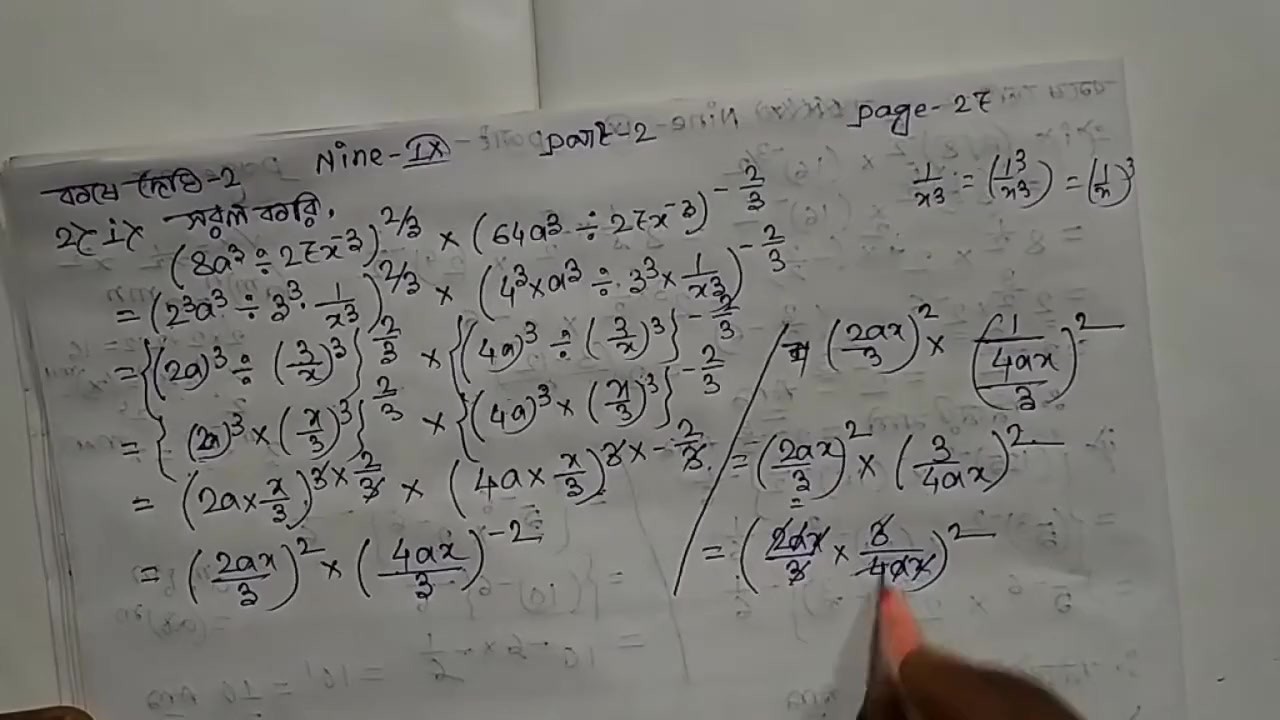 Nine-IX part-2 page-27
কষে দেখি-2
2(i) সরল করি,
(8a³ ÷ 27x⁻³)^2/3 × (64a³ ÷ 27x⁻³)^-2/3
1/x³ = (1³/x³) = (1/x)³
= (2³a³ ÷ 3³ · 1/x³)^2/3 × (4³×a³ ÷ 3³ × 1/x³)^-2/3
= {(2a)³ ÷ (3/x)³}^2/3 × {(4a)³ ÷ (3/x)³}^-2/3
= {(2a)³ × (x/3)³}^2/3 × {(4a)³ × (x/3)³}^-2/3
= (2a × x/3)^3 × 2/3 × (4a × x/3)^3 × -2/3
= (2ax/3)² × (4ax/3)⁻²
(2ax/3)² × (1/(4ax/3))²
= (2ax/3)² × (3/4ax)²
= (2ax/3 × 3/4ax)²